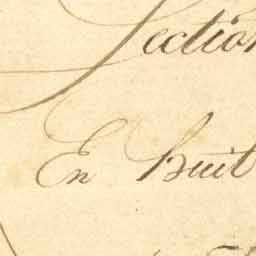 Section
En Huit